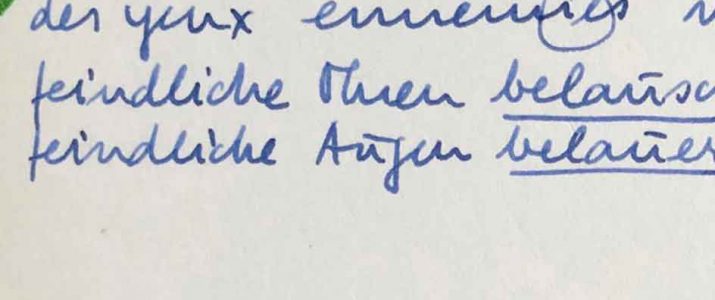 des yeux ennemies
feindliche Ohren belausc
feindliche Augen belauer